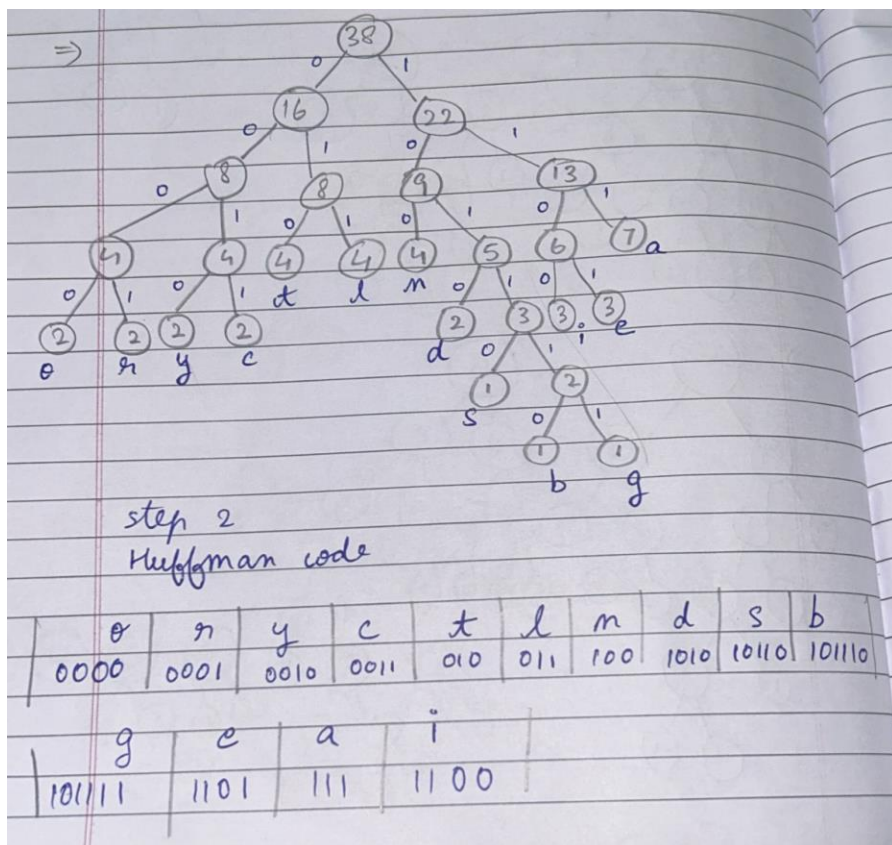 ⇒ 38
0 1
16 22
0 1 0 1
8 8 9 13
0 1 0 1 0 1 0 1
4 4 4 4 4 5 6 7 a
t l n
0 1 0 1 0 1 0 1
2 2 2 2 2 3 3 3
o r y c d i e
0 1
1 2
s 0 1
1 1
b g
step 2
Huffman code
o r y c t l n d s b
0000 0001 0010 0011 010 011 100 1010 10110 101110
g e a i
101111 1101 111 1100